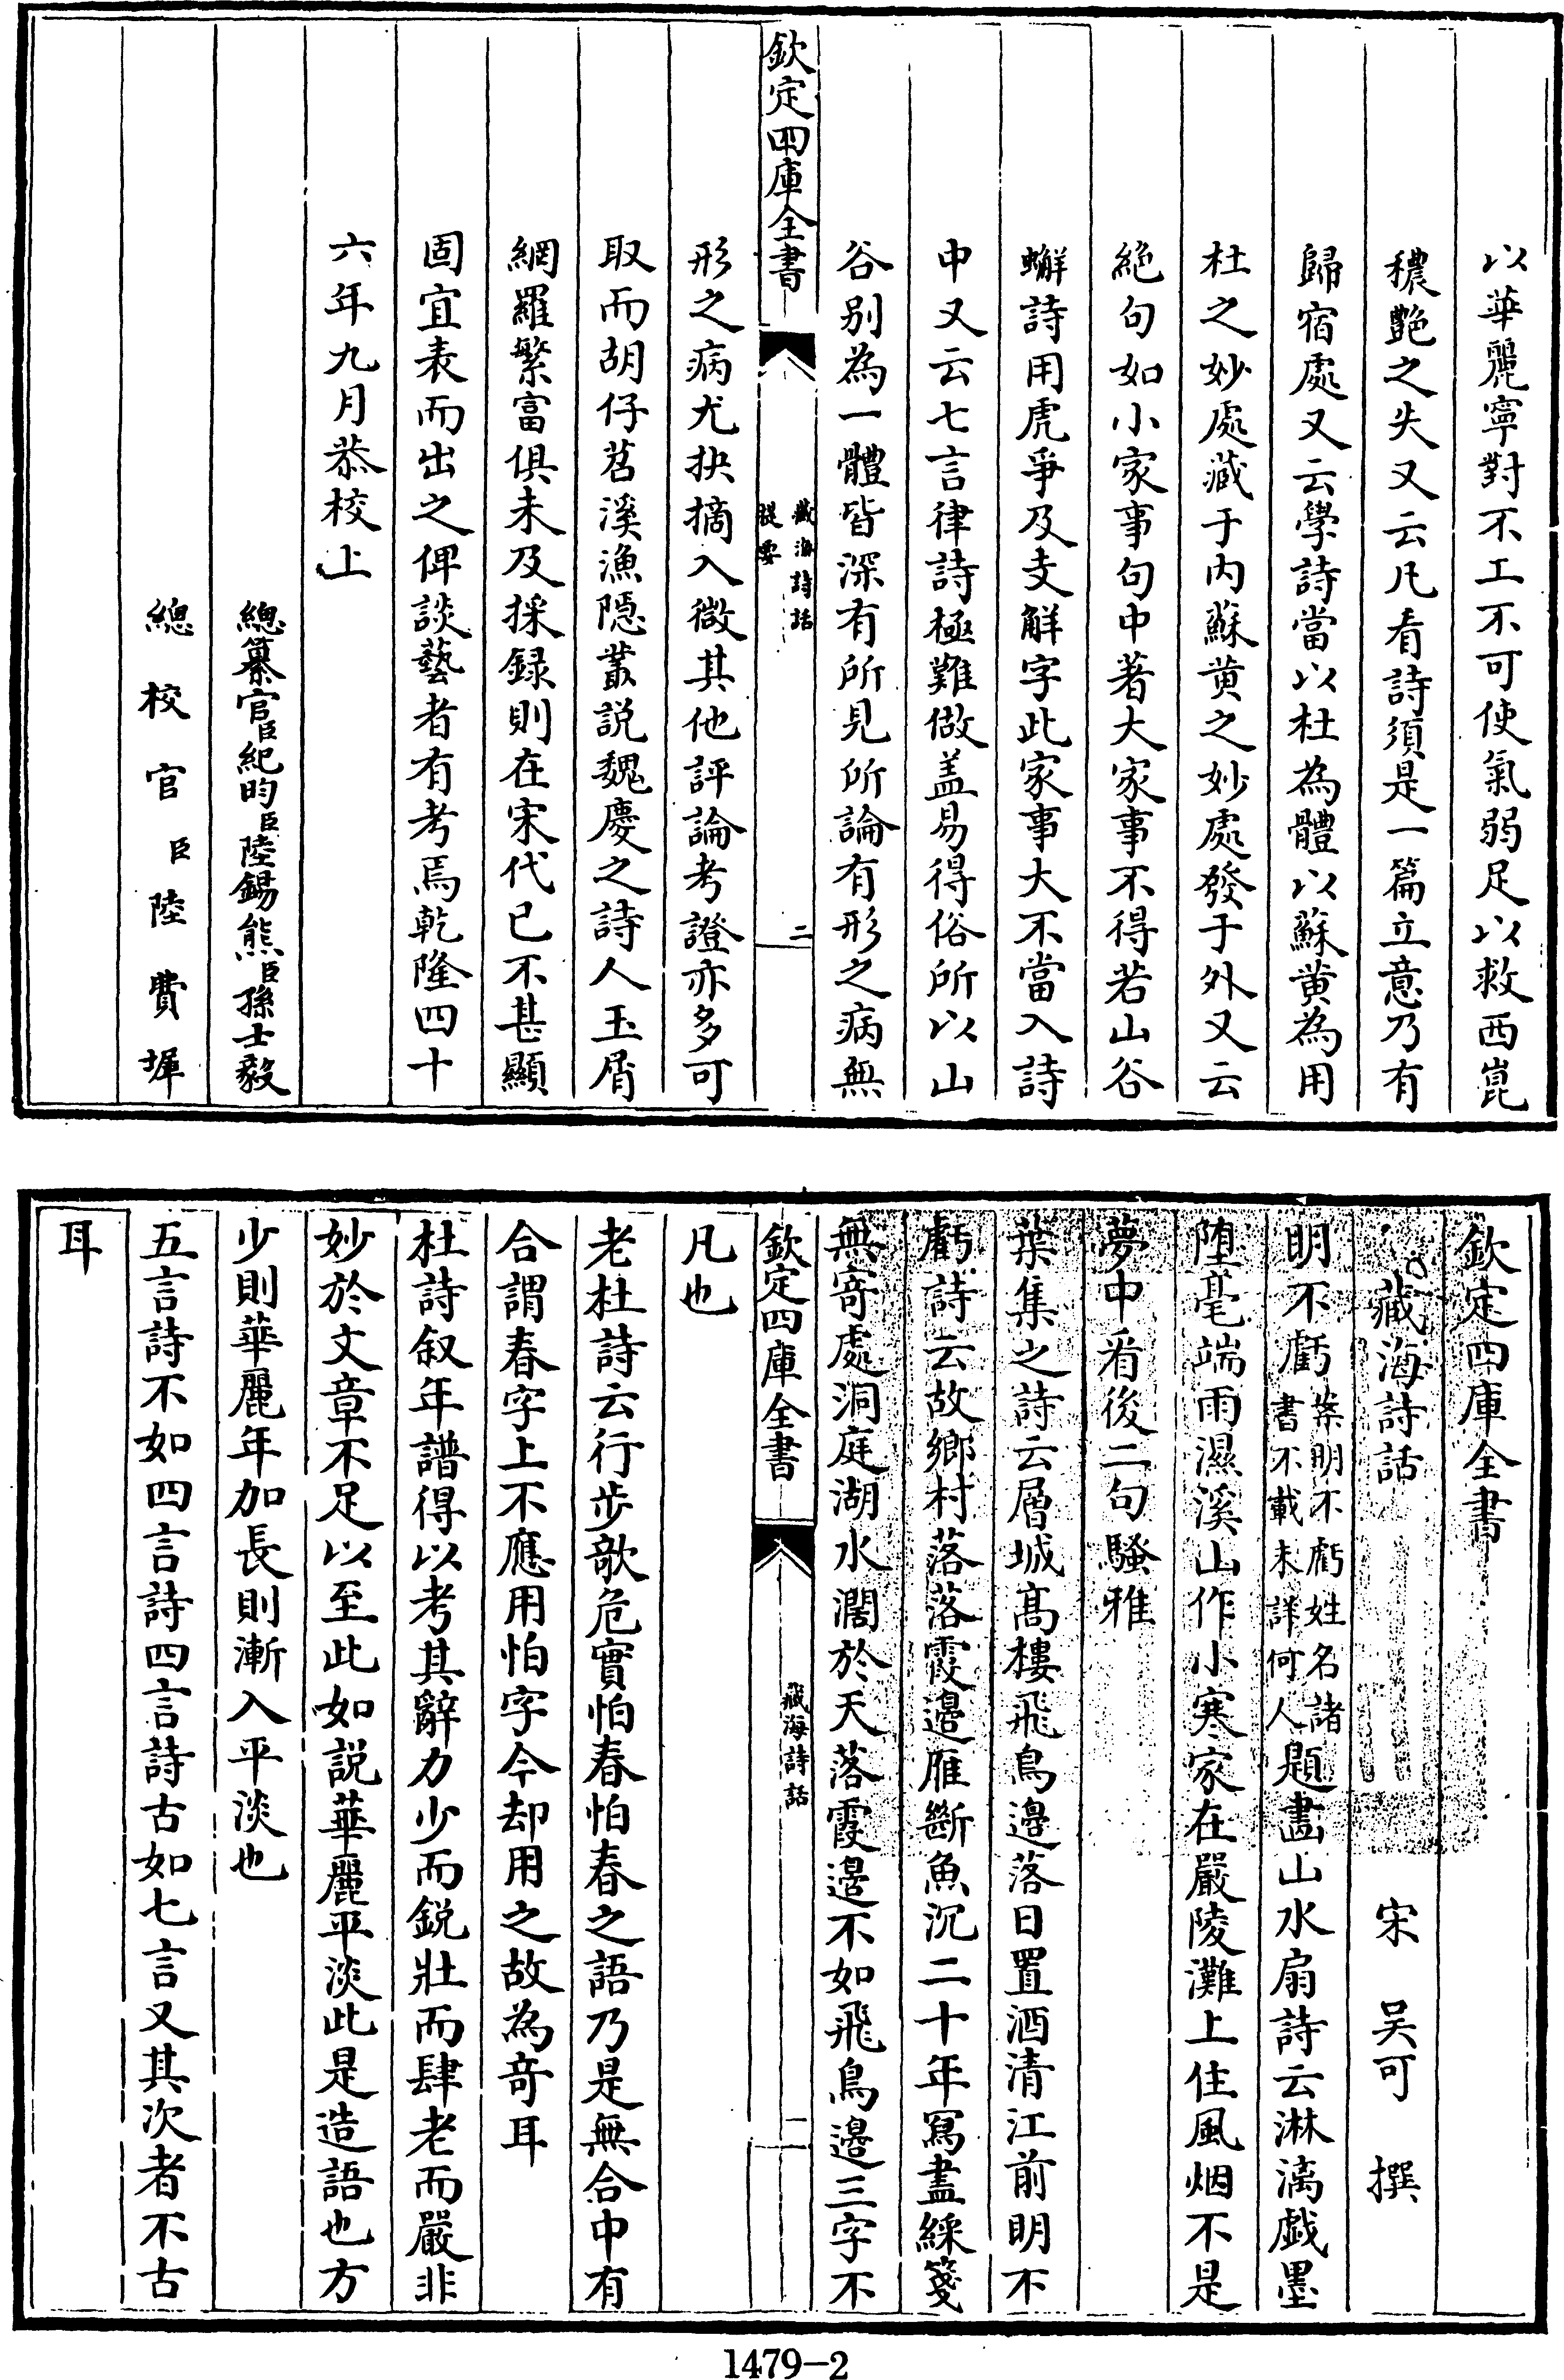 以華麗寧對不工不可使氣弱足以救西崑
穠艶之失又云凡看詩須是一篇立意乃有
歸宿處又云學詩當以杜為體以蘇黄為用
杜之妙處藏于内蘇黄之妙處發于外又云
絶句如小家事句中著大家事不得若山谷
蠏詩用虎爭及支解字此家事大不當入詩
中又云七言律詩極難做盖易得俗所以山
谷别為一體皆深有所見所論有形之病無
欽定四庫全書
藏海詩話
提要
二
形之病尤抉摘入微其他評論考證亦多可
取而胡仔苕溪漁隠叢説魏慶之詩人玉屑
網羅繁富俱未及採録則在宋代已不甚顯
固宜表而出之俾談藝者有考焉乾隆四十
六年九月恭校上
總纂官臣紀昀臣陸錫熊臣孫士毅
總校官臣陸費墀
欽定四庫全書
藏海詩話
宋 吴可 撰
明不虧案明不虧姓名諸
書不載未詳何人題畫山水扇詩云淋漓戯墨
墮毫端雨濕溪山作小寒家在嚴陵灘上住風烟不是
夢中看後二句騷雅
葉集之詩云層城髙樓飛鳥邉落日置酒清江前明不
虧詩云故鄉村落落霞邉雁斷魚沉二十年寫盡綵箋
無寄處洞庭湖水濶於天落霞邉不如飛鳥邉三字不
欽定四庫全書
藏海詩話
一
凡也
老杜詩云行步欹危實怕春怕春之語乃是無合中有
合謂春字上不應用怕字今却用之故為竒耳
杜詩叙年譜得以考其辭力少而鋭壯而肆老而嚴非
妙於文章不足以至此如説華麗平淡此是造語也方
少則華麗年加長則漸入平淡也
五言詩不如四言詩四言詩古如七言又其次者不古
耳
1479-2